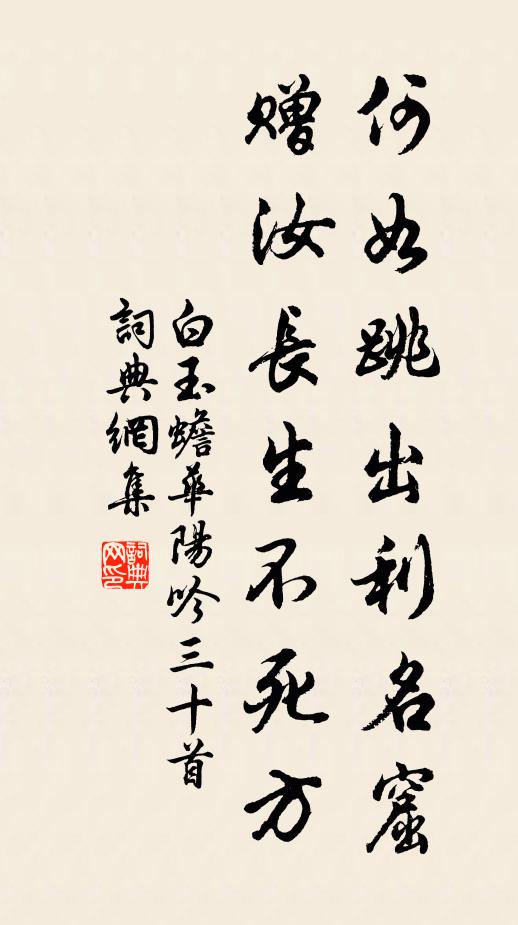 何如跳出利名窟
赠汝長生不死方
白玉蟾華陽吟三十首
詞典網集
詞典网印